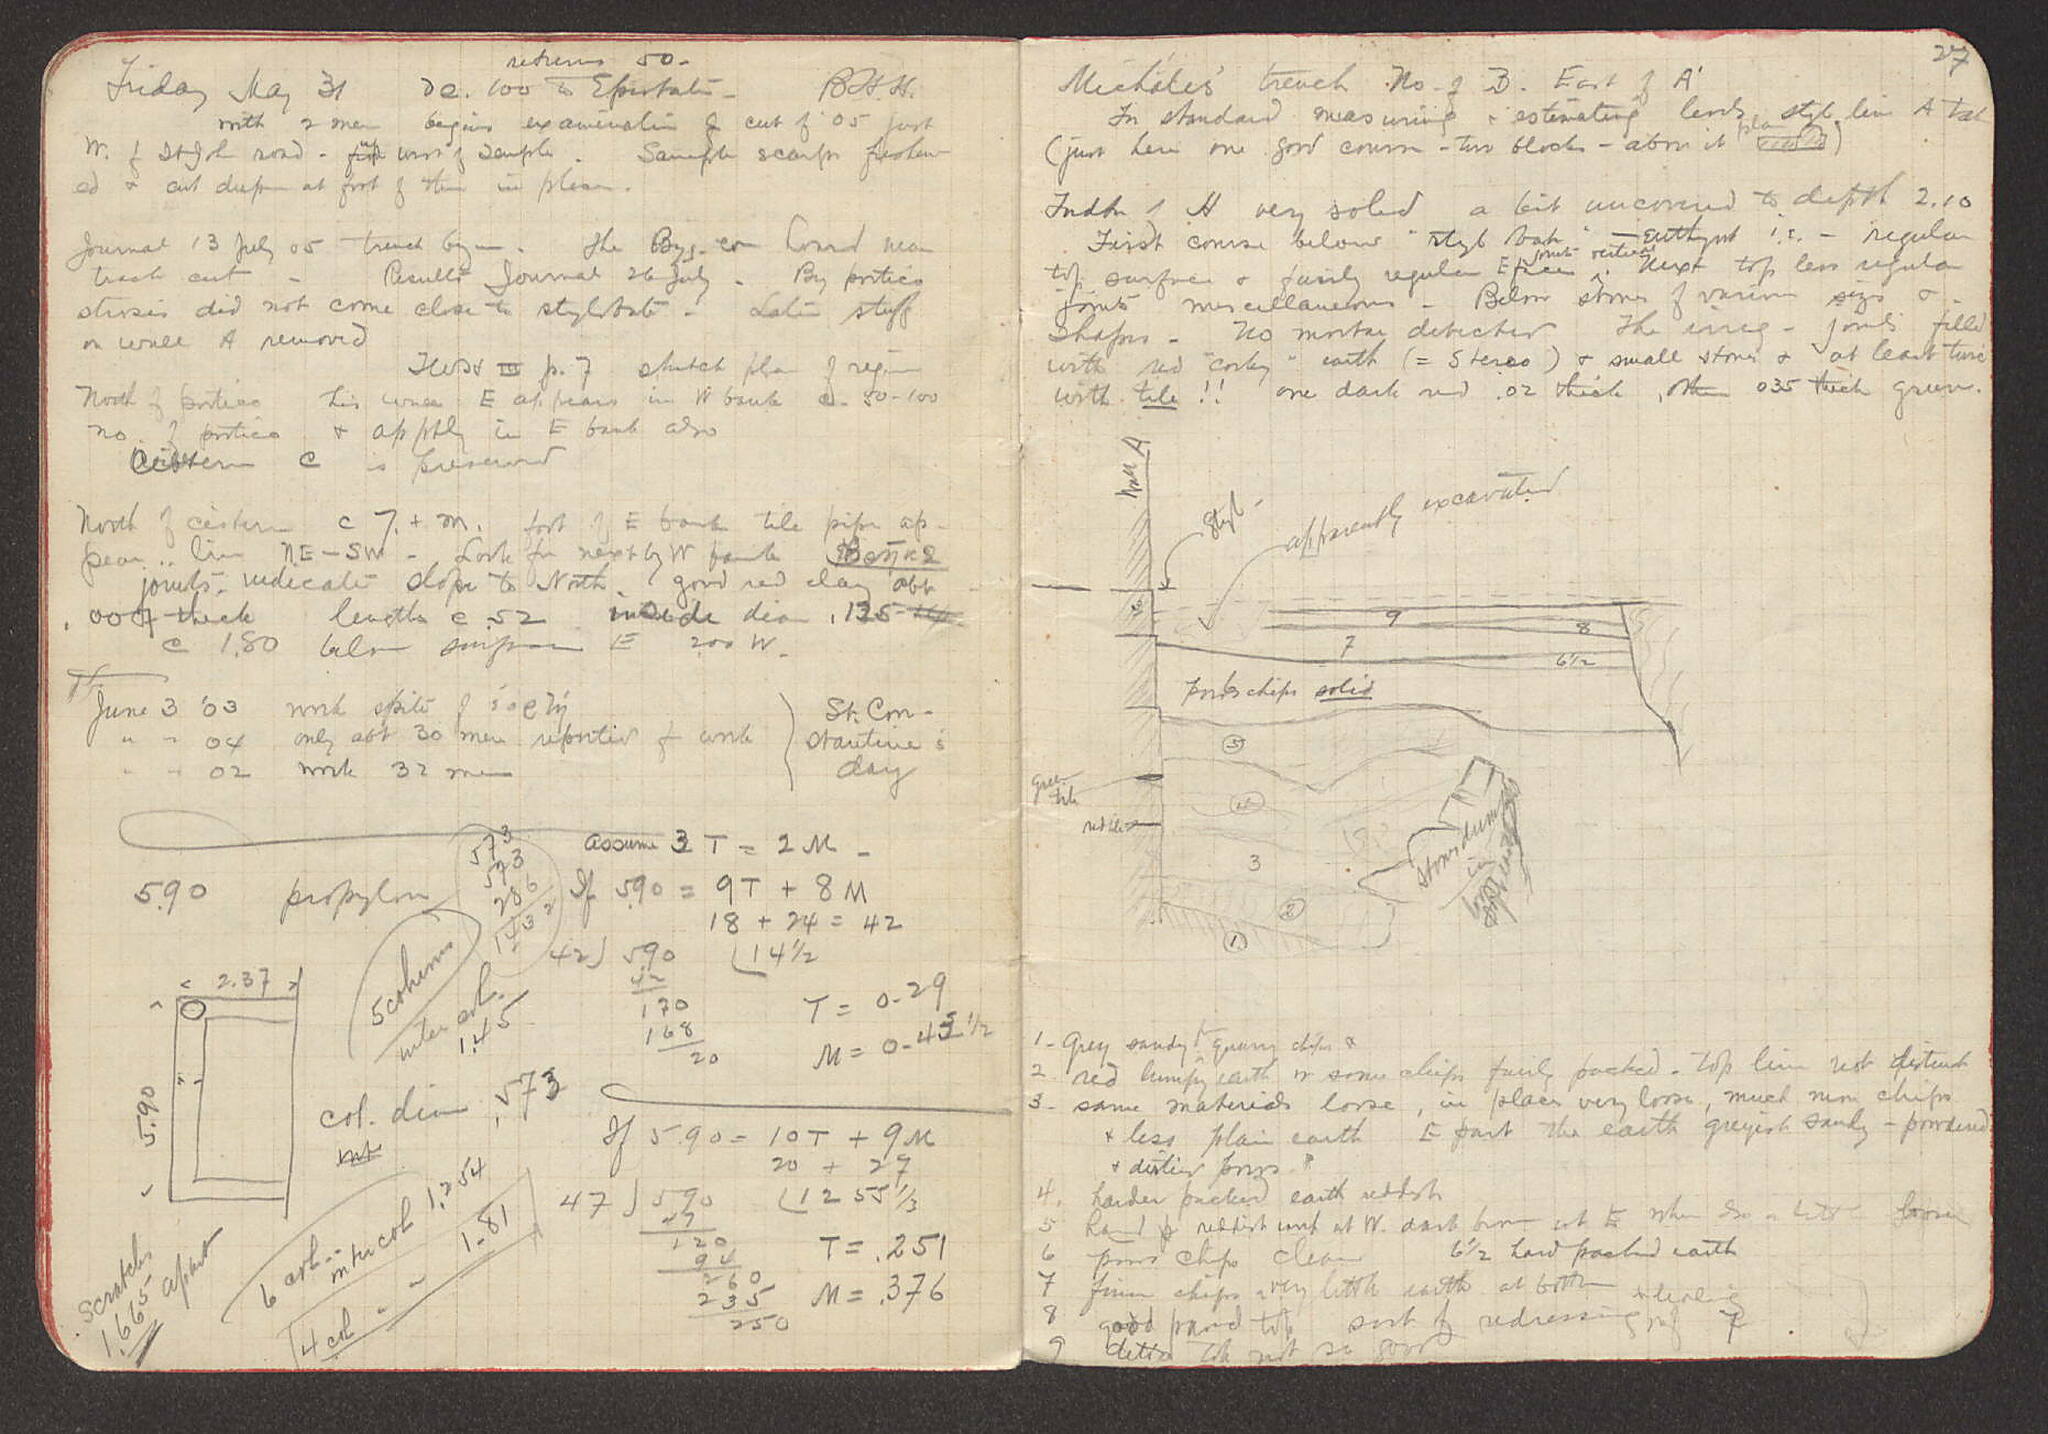 returns 50-
Friday May 31 De. 100 to Epistati - B.H.H.
with 2 men begins examination of cut of '05 just
W. of St John road - just west of Temple. Sample scarps freshen
ed & cut deeper at foot of them in places.
Journal 13 July 05 trench begun. The Byz. con found near
track cut - Results Journal 26 July. By portico
stroses did not come close to stylobate - Later stuff
on wall A removed
III p. 7 sketch plan of region
North of portico this wall E appears in W bank c. 80-100
no. of portico & apptly in E bank also
Cistern C is preserved
North of cistern c 7.+ m. foot of E bank tile pipe ap-
pears line NE-SW - Look for next by W bank
joints indicate slope to North. good red clay abt
.007 thick lengths c .52 inside diam .135
c 1.80 below surface E 2.00 W.
June 3 '03 work spite of ἑορτή
" " 04 only abt 30 men reported for work
" " 02 work 32 men
St. Con-
stantine's
day
5.90 propylon
573
573
286
1432
assume 3 T = 2 M -
If 5.90 = 9T + 8M
18 + 24 = 42
42) 590 (14 1/2
42
170
168
20
T = 0.29
M = 0.43 1/2
5 columns
inter col.
1.45
2.37
5.90
col. diam .573
int
6 col. - intercol 1.254
4 col " " 1.81
scratches
1.665 apart
If 5.90 = 10T + 9M
20 + 27
47) 590 (1255 1/3
47
120
94
260
235
250
T = .251
M = .376
27
Michales' trench No. of B. East of A
In standard measuring & estimating levels styl. line A
(just here one good course - two blocks - above it plan)
Fndtn of A very solid a bit uncovered to depth 2.10
First course below "styl bank" - euthynt i.e. - regular
top surface & fairly regular E face joints vertical. Next top less regular
joints miscellaneous - Below stones of various sizes &
shapes - No mortar detected The irreg - joints filled
with red "corky" earth (= Stereo) & small stones & at least twice
with tile!! one dark red .02 thick, other .035 thick green.
Wall A
Styl -
apparently excavated
9
8
7
6 1/2
poros chips solid
5
4
green
tile
red tile
3
2
1.
Stones dumped
in
1- Grey sandy & quarry chips &
2 red lumpy earth & some chips fairly packed - top line not distinct
3- same materials loose, in places very loose, much more chips
& less plain earth E part the earth greyish sandy - powdered
& dirtier poros?
4. harder packed earth reddish
5 hard reddish at W. dark brown at E when so a little looser
6 poros chips clean 6 1/2 hard packed earth
7 finer chips & very little earth at bottom
8 good paved top sort of redressing & leveling of 7.
9 ditto top not so good